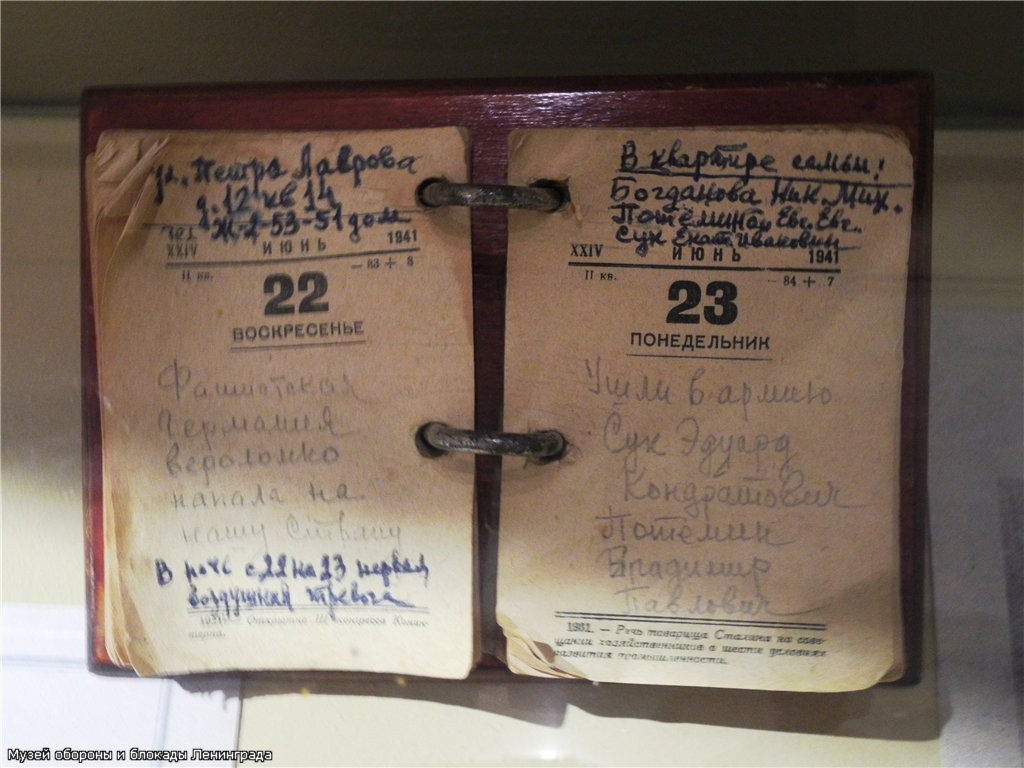 ул. Петра Лаврова
д. 12 кв 14
тел Ж-2-53-51 дом
XXIV ИЮНЬ 1941
II кв. — 83 + 8
22
ВОСКРЕСЕНЬЕ
Фашистская
Германия
вероломно
напала на
нашу Страну
В ночь с 22 на 23 первая
воздушная тревога
Открытие III конгресса Комин-
терна.
В квартире семьи:
Богданова Ник. Мих.
Потёминой Евг. Евг.
Сук Екат. Ивановны
XXIV ИЮНЬ 1941
II кв. — 84 + 7
23
ПОНЕДЕЛЬНИК
Ушли в армию
Сук Эдуард
Кондратович
Потёмин
Владимир
Павлович
1931. — Речь товарища Сталина на сове-
щании хозяйственников о шести условиях
развития промышленности.
Музей обороны и блокады Ленинграда